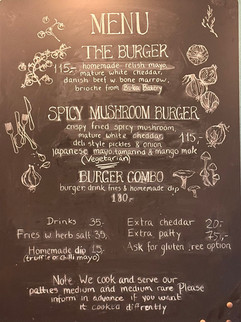 MENU
THE BURGER
115,- homemade relish mayo
mature white cheddar,
danish beef w bone marrow,
brioche from Bakery
SPICY MUSHROOM BURGER
crispy fried spicy mushroom,
mature white cheddar, 115,-
deli style pickles & onion
japanese mayo, tamarind & mango mole
(Vegetarian)
BURGER COMBO
burger, drink, fries & homemade dip
180,-
Drinks 35.-
Fries w herb salt 35,-
Homemade dip 15
(truffle or chili mayo)
Extra cheddar 20,-
Extra patty 45,-
Ask for gluten free option
Note We cook and serve our
patties medium and medium rare Please
inform in advance if you want
it cooked differently